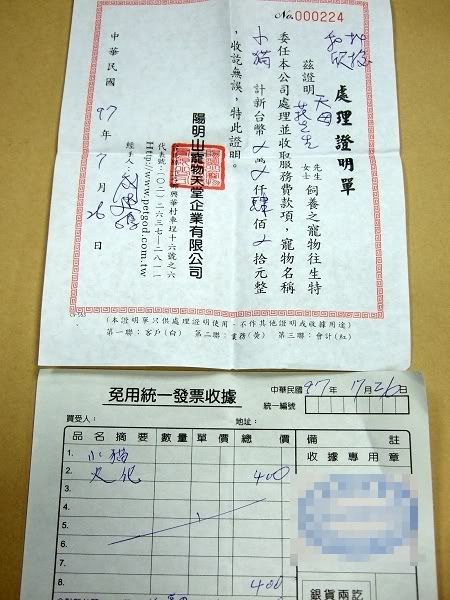 No.000224
處理證明單
茲證明 天母 先生 女士 飼養之寵物往生特
委任本公司處理並收取服務費款項，寵物名稱
小貓 計新台幣 萬 仟 肆 佰 拾元整
，收訖無誤，特此證明。
陽明山寵物天堂企業有限公司
興華村車埕十六號之六
代表號：（０２）２６３７－２８１１
Http://www.petgod.com.tw
經手人：
中華民國 97 年 7 月 26 日
(本證明單只供處理證明使用，不作其他證明或收據用途)
第一聯：客戶(白) 第二聯：業務(黃) 第三聯：會計(紅)
免用統一發票收據
中華民國 97 年 7 月 26 日
統一編號
買受人： 地址：
品名摘要 數量 單價 總價 備註
1. 小貓 收據專用章
2. 火化 400
3.
4.
5.
6.
7.
8. 400
銀貨兩訖